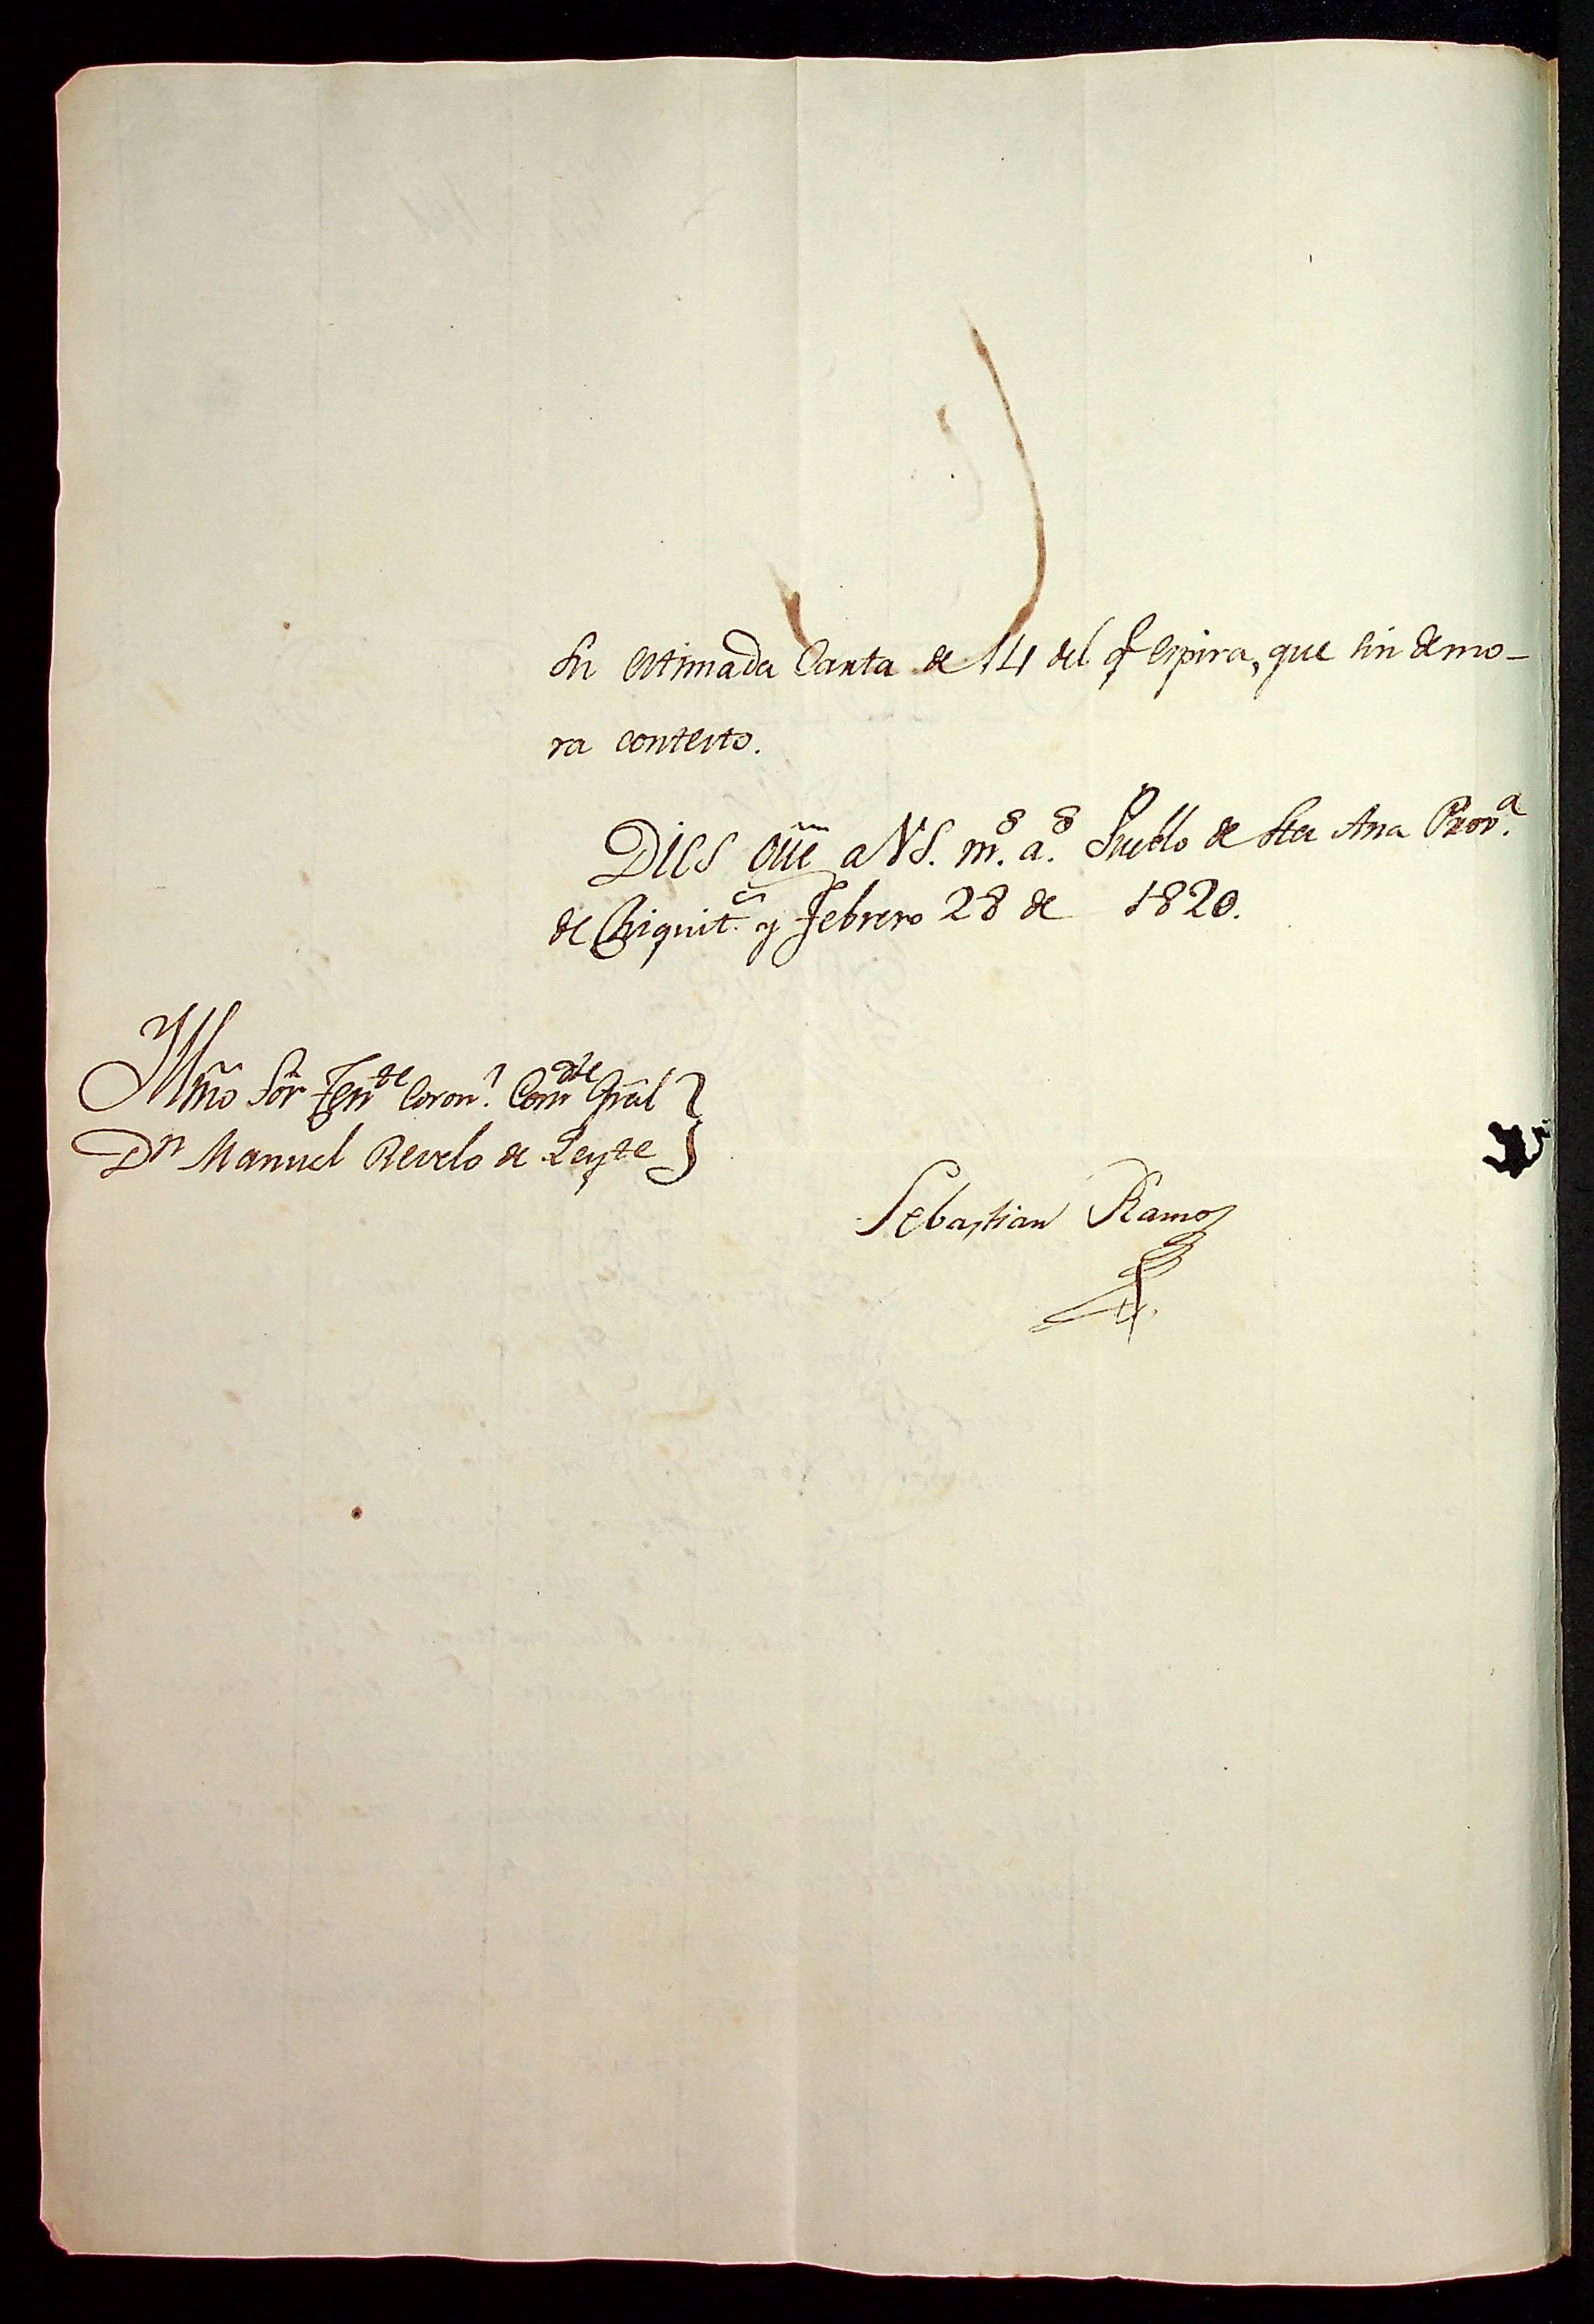 Su estimada Carta de 14 del q.e espira, que sin demo-
ra contesto.
Dios gũe a VS. m.s a.s Pueblo de Sta Ana Prov.a
de Chiquit.s y Febrero 28 de 1820.
Yllmõ Sõr Ten.te Coron.l Com.dte Gral
Dn Manuel Revelo de Leyte
Sebastian Ramos